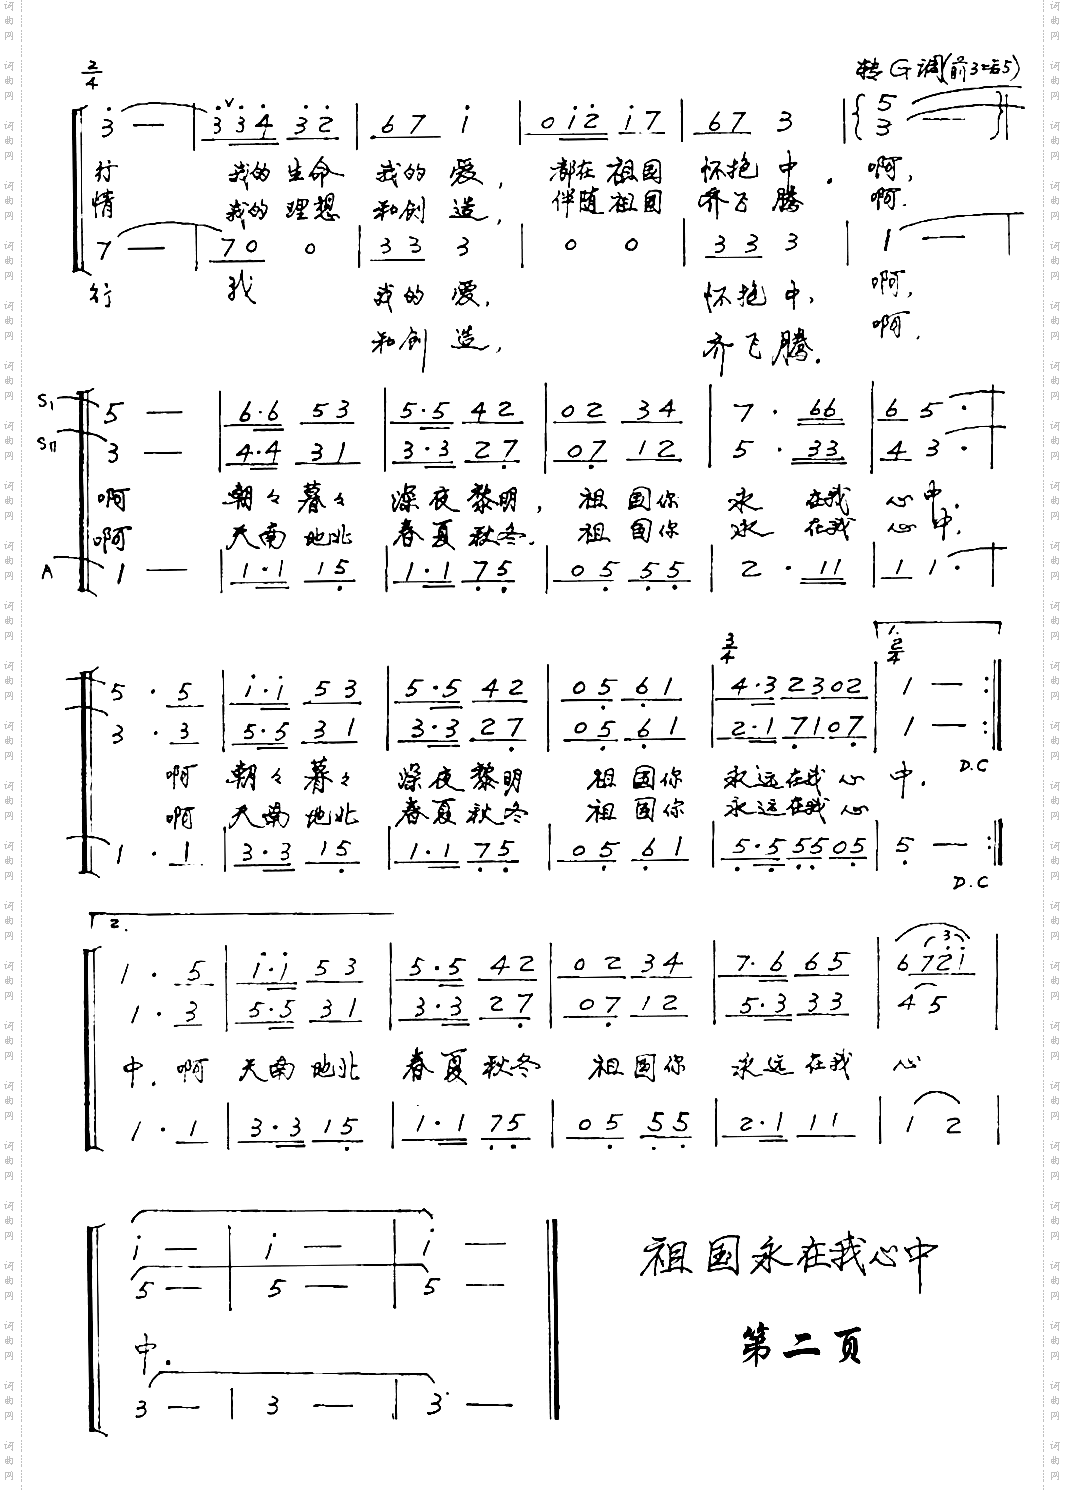 2/4
转G调(前3=后5)
3̇ — | 3̇ 3̇ 4̇ 3̇ 2̇ | 6 7 1̇ | 0 1̇ 2̇ 1̇ 7 | 6 7 3 | { 5 3 — } |
行 我的 生命 我的 爱, 都在 祖国 怀抱 中. 啊,
情 我的 理想 和创 造, 伴随 祖国 齐飞 腾 啊.
7 — | 7 0 0 | 3 3 3 | 0 0 | 3 3 3 | 1 — |
行 我 我的 爱, 怀抱 中, 啊,
和创 造, 齐飞 腾. 啊.
SⅠ 5 — | 6·6 5 3 | 5·5 4 2 | 0 2 3 4 | 7 · 6 6 | 6 5 · |
SⅡ 3 — | 4·4 3 1 | 3·3 2 7̣ | 0 7̣ 1 2 | 5 · 3 3 | 4 3 · |
啊 朝々 暮々 深夜 黎明, 祖 国你 永 在我 心 中.
啊 天南 地北 春夏 秋冬. 祖 国你 永 在我 心 中.
A 1 — | 1·1 1 5̣ | 1·1 7̣ 5̣ | 0 5̣ 5̣ 5̣ | 2 · 1 1 | 1 1 · |
3/4 1. 2/4
5 · 5 | 1̇·1̇ 5 3 | 5·5 4 2 | 0 5̣ 6̣ 1 | 4·3 2 3 0 2 | 1 — :‖
3 · 3 | 5·5 3 1 | 3·3 2 7̣ | 0 5̣ 6̣ 1 | 2·1 7̣ 1 0 7̣ | 1 — :‖
D.C
啊 朝々 暮々 深夜 黎明 祖 国你 永远在我 心 中.
啊 天南 地北 春夏 秋冬 祖 国你 永远在我 心
1 · 1 | 3·3 1 5̣ | 1·1 7̣ 5̣ | 0 5̣ 6̣ 1 | 5̣·5̣ 5̣ 5̣ 0 5̣ | 5̣ — :‖
D.C
2.
1 · 5 | 1̇·1̇ 5 3 | 5·5 4 2 | 0 2 3 4 | 7·6 6 5 | 6 7 2̇ 1̇ |
3
1 · 3 | 5·5 3 1 | 3·3 2 7̣ | 0 7̣ 1 2 | 5·3 3 3 | 4 5 |
中. 啊 天南 地北 春夏 秋冬 祖 国你 永远 在我 心
1 · 1 | 3·3 1 5̣ | 1·1 7̣ 5̣ | 0 5̣ 5̣ 5̣ | 2·1 1 1 | 1 2 |
1̇ — | 1̇ — | 1̇ — ‖
5 — | 5 — | 5 — ‖
中.
3 — | 3 — | 3 — ‖
祖国永在我心中
第二页
词曲网